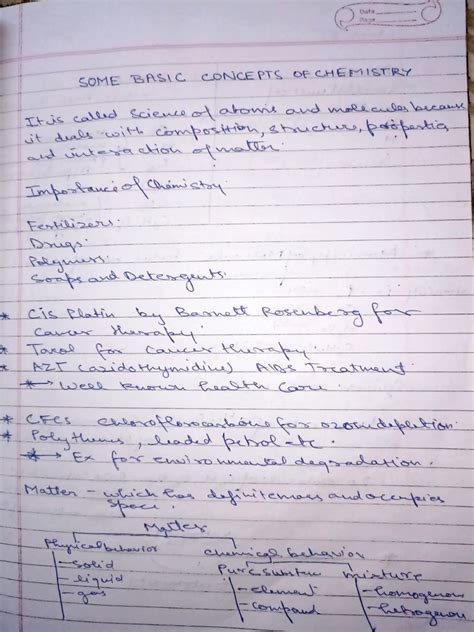 Date
Page
SOME BASIC CONCEPTS OF CHEMISTRY
It is called Science of atoms and molecules because
it deals with composition, structure, properties,
and interaction of matter.
Importance of Chemistry.
Fertilizers.
Drugs.
Polymers.
Soaps and Detergents.
* Cis Platin by Barnett Rosenberg for
Cancer therapy.
* Taxol for Cancer therapy
* AZT (azidothymidine) AIDS Treatment
*→ Well known health Care
* CFCs chloroflorocarbons for ozone depletion.
* Polythenes, leaded petrol etc
*→ Ex for environmental degradation.
Matter - which has definite mass and occupies
space.
Matter
Physical behavior chemical behavior
- solid Pure Substan mixture
- liquid → element → homogenous
- gas → compound → hetrogenous